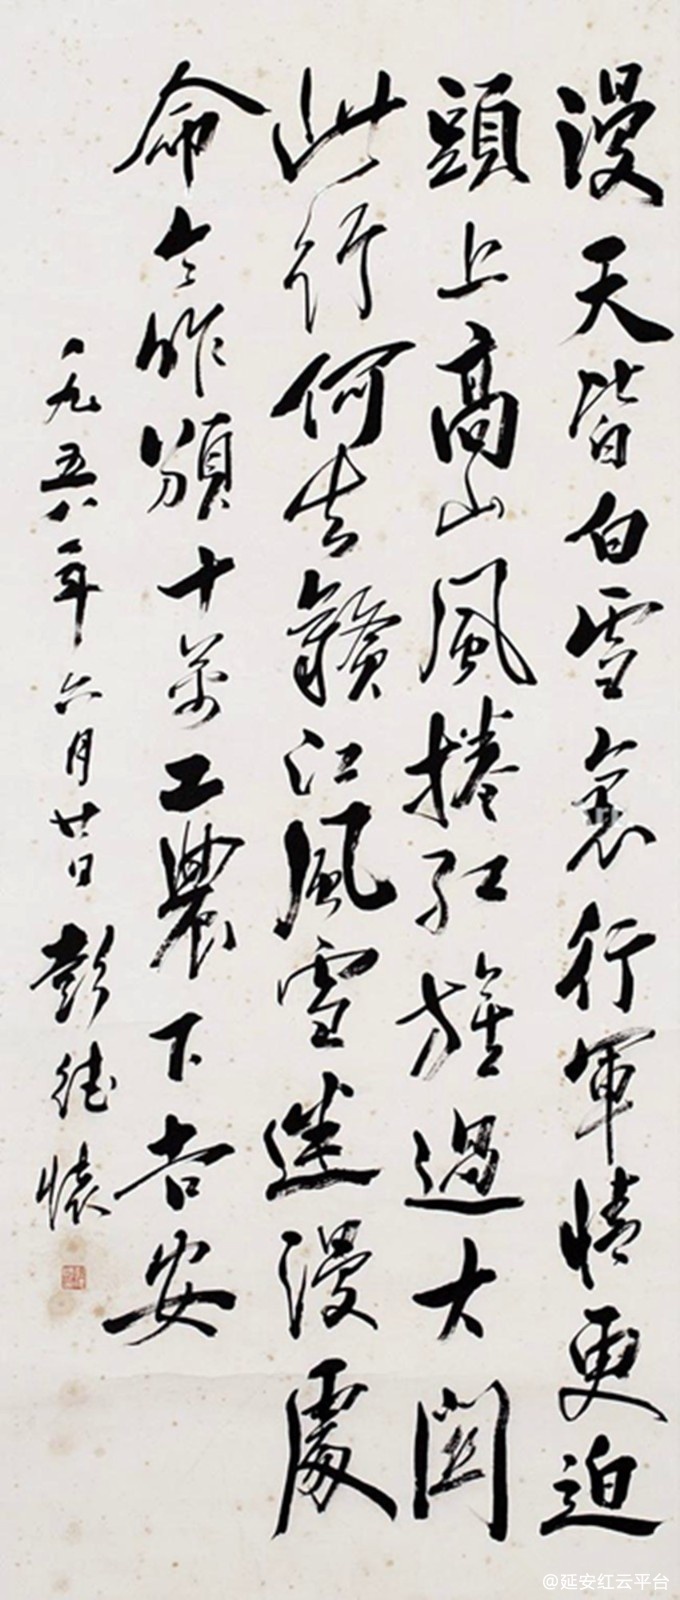 漫天皆白雪裏行軍情更迫
頭上高山風捲紅旗過大關
此行何去贛江風雪迷漫處
命令昨頒十萬工農下吉安
一九五八年六月廿日彭德懷
@延安红云平台